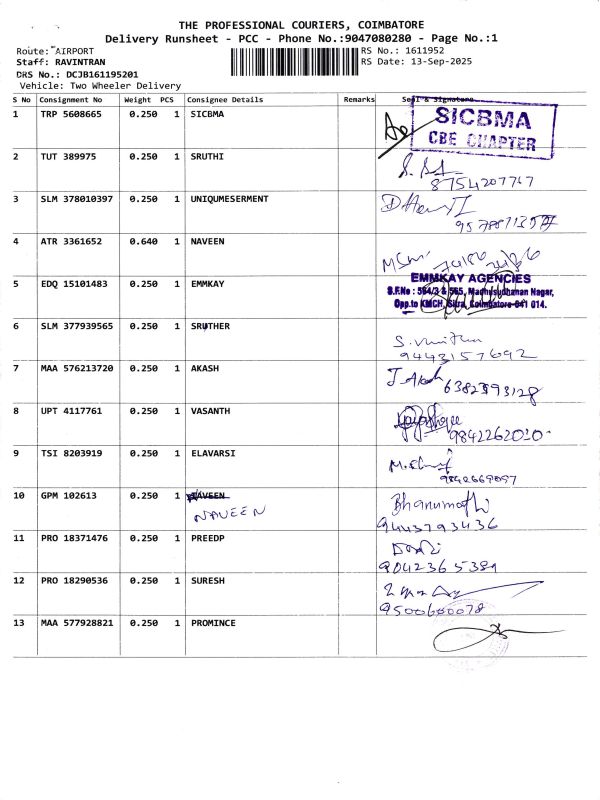 THE PROFESSIONAL COURIERS, COIMBATORE
Delivery Runsheet - PCC - Phone No.:9047080280 - Page No.:1
Route: AIRPORT
RS No.: 1611952
Staff: RAVINTRAN
RS Date: 13-Sep-2025
DRS No.: DCJB161195201
Vehicle: Two Wheeler Delivery
S No Consignment No Weight PCS Consignee Details Remarks Seal & Signature
1 TRP 5608665 0.250 1 SICBMA
SICBMA
CBE CHAPTER
2 TUT 389975 0.250 1 SRUTHI
8754207767
3 SLM 378010397 0.250 1 UNIQUMESERMENT
4 ATR 3361652 0.640 1 NAVEEN
5 EDQ 15101483 0.250 1 EMMKAY
EMMKAY AGENCIES
S.F.No : 564/3 & 565, Madhusudhanan Nagar,
Opp.to KMCH, Sitra, Coimbatore-641 014.
6 SLM 377939565 0.250 1 SRUTHER
9443157692
7 MAA 576213720 0.250 1 AKASH
J. Akash 6382893128
8 UPT 4117761 0.250 1 VASANTH
9842262010
9 TSI 8203919 0.250 1 ELAVARSI
9842669097
10 GPM 102613 0.250 1 NAVEEN
NAVEEN
Bhanumathi
9443793436
11 PRO 18371476 0.250 1 PREEDP
9042365389
12 PRO 18290536 0.250 1 SURESH
9500600078
13 MAA 577928821 0.250 1 PROMINCE